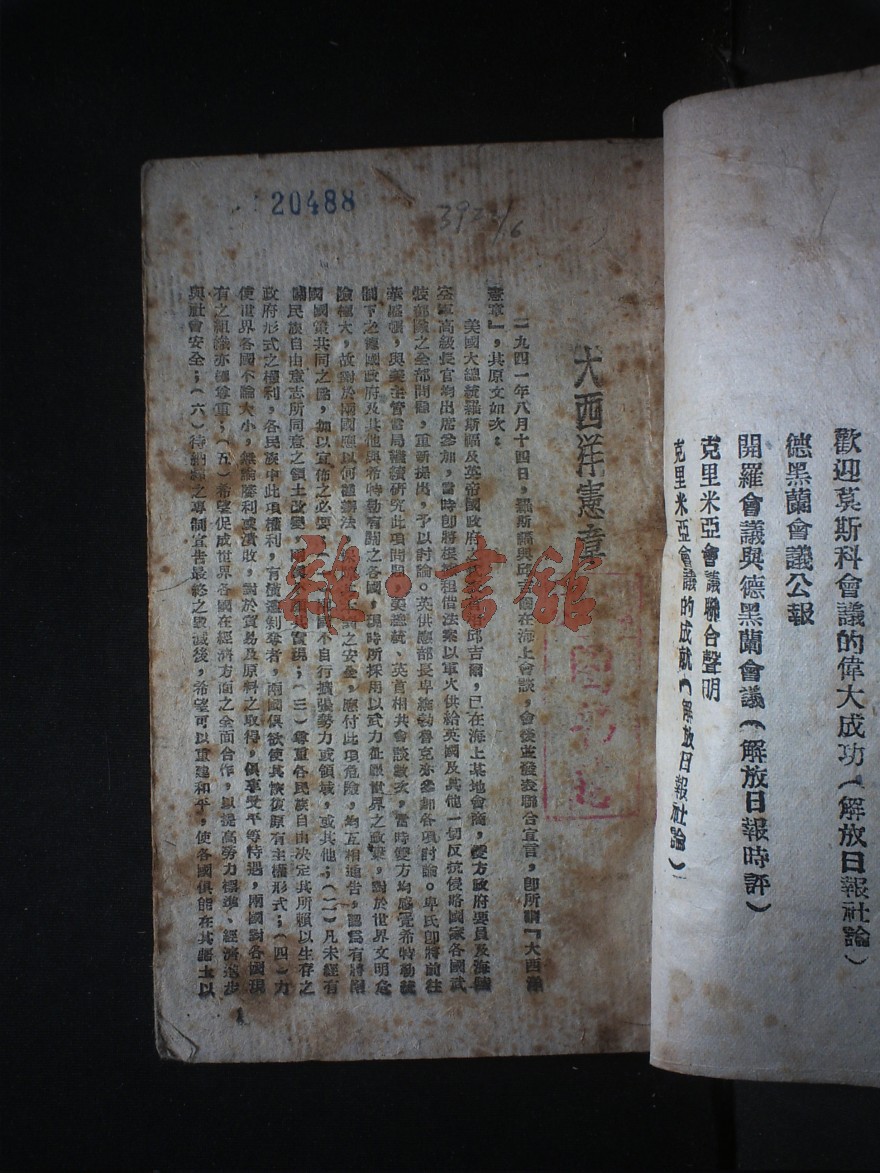 歡迎莫斯科會議的偉大成功(解放日報社論)
德黑蘭會議公報
開羅會議與德黑蘭會議(解放日報時評)
克里米亞會議聯合聲明
克里米亞會議的成就(解放日報社論)
20488
大西洋憲章
一九四一年八月十四日,羅斯福與邱吉爾在海上會談,會後並發表聯合宣言,卽所謂『大西洋
憲章』,其原文如次:
美國大總統羅斯福及英帝國政府之邱吉爾,已在海上某地會商,雙方政府要員及海陸
空軍高級長官均出席參加,當時卽將根據租借法案以軍火供給英國及其他一切反抗侵略國家各國武
裝部隊之全部問題,重新提出,予以討論。英供應部長卑維勃魯克亦參加各項討論。卑氏卽將前往
華盛頓,與美主管當局繼續研究此項問題。美總統、英首相共會談數次,當時雙方均感覺希特勒統
制下之德國政府及其他與希特勒有關之各國,現時所採用以武力征服世界之政策,對於世界文明危
險極大,故對於兩國應以何種辦法之安全,應付此項危險,均互相通告,認爲有將兩
國國策共同之點,加以宣佈之必要:國不自行擴張勢力或領域,或其他;(二)凡未經有
關民族自由意志所同意之領土改變,其實現;(三)尊重各民族自由決定其所賴以生存之
政府形式之權利,各民族中此項權利,有橫遭剝奪者,兩國俱欲使其恢復原有主權形式;(四)力
使世界各國不論大小,無論勝利或潰敗,對於貿易及原料之取得,俱享受平等待遇,兩國對各國現
有之組織亦極尊重;(五)希望促成世界各國在經濟方面之全面合作,以提高勞力標準、經濟進步
與社會安全;(六)待納粹之專制宣告最終之毀滅後,希望可以重建和平,使各國俱能在其疆土以
1
雜·書館